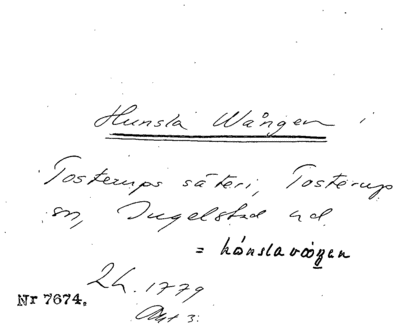 Hunsla Wången i
Tosterups säteri, Tosterup
sn, Ingelstad hd.
= hónslavåŋen
Lh. 1779
Akt 3.
Nr 7674.